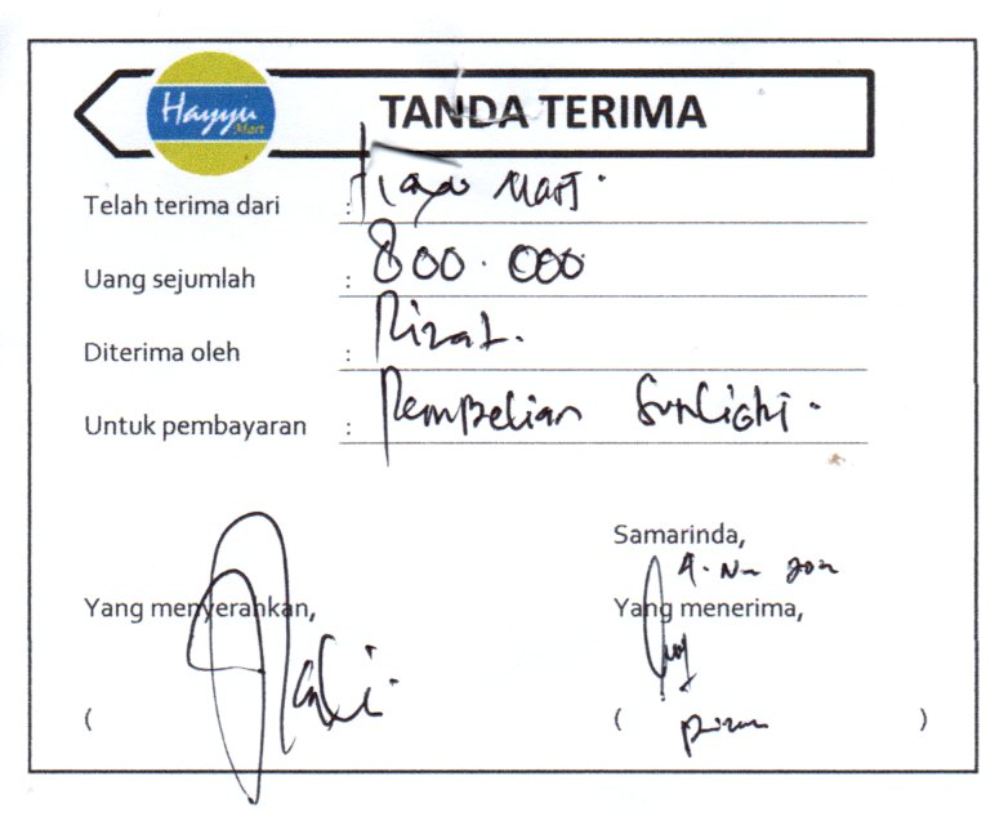 Hayyu Mart
TANDA TERIMA
Telah terima dari : Hayu Mart.
Uang sejumlah : 800.000
Diterima oleh : Rizal.
Untuk pembayaran : Pembelian Sunlight.
Samarinda,
Yang menyerahkan,
Yang menerima,
(
( )